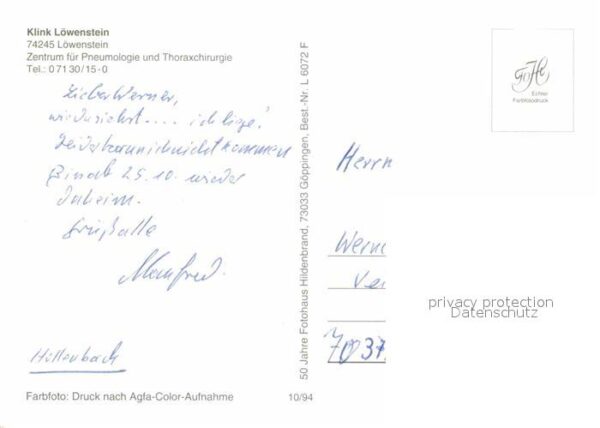 Klink Löwenstein
74245 Löwenstein
Zentrum für Pneumologie und Thoraxchirurgie
Tel.: 0 71 30/15-0
Lieber Werner,
wie du siehst .... ich liege!
Leider kann ich nicht kommen
Bin ab 25.10. wieder
daheim.
Grüß alle
Manfred.
50 Jahre Fotohaus Hildenbrand, 73033 Göppingen, Best.-Nr. L 6072 F
Echter
Farbfotodruck
Herrn
Wern
7037
privacy protection
Datenschutz
Farbfoto: Druck nach Agfa-Color-Aufnahme
10/94